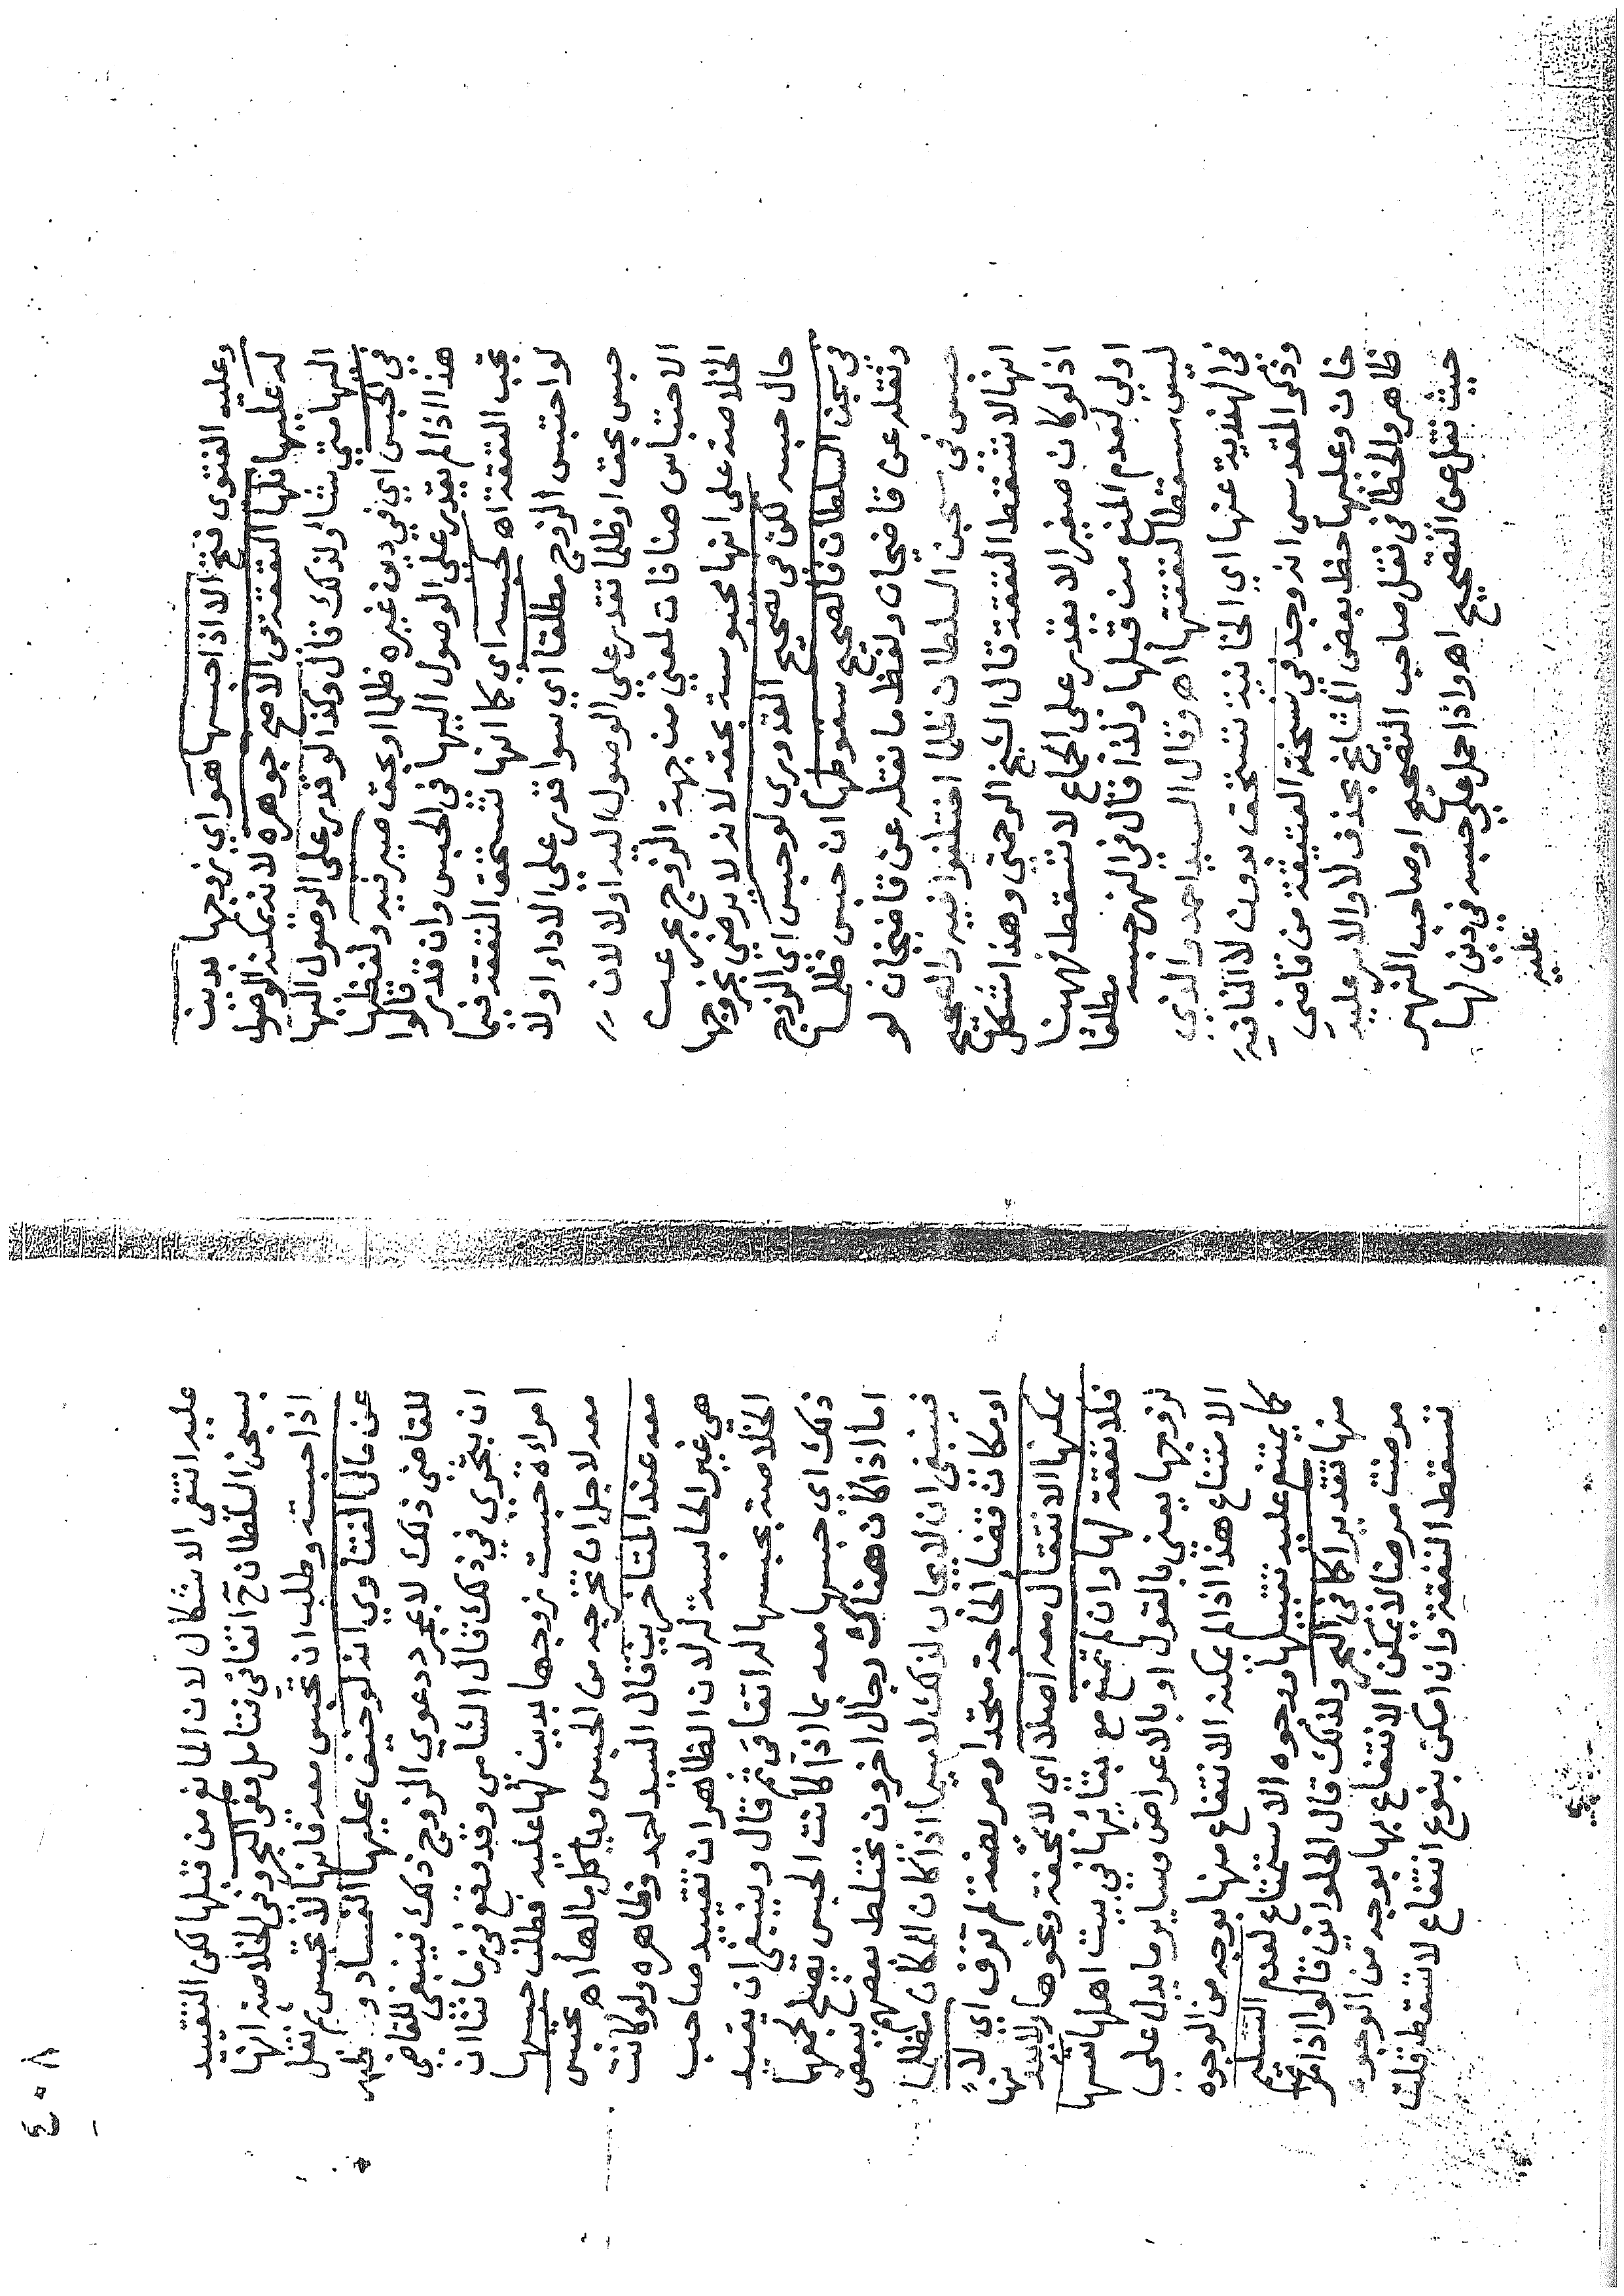 وعليه الفتوى فتح الا اذا حبسها هو اي زوجها بدين
له عليها فلها النفقة في الاصح جوهره لانه يمكنه الوصول
اليها متي شاء ولذلك قال وكذا لو قدر على الوصول اليها
في الحبس اي في دين غيره ظلما او بحق صيرفيه ولفظها قالوا
هذا اذا لم يقدر علي الوصول اليها في الحبس وان قدر
تجب النفقة اه كحبسه اي كما انها تستحق النفقة فيما
لو احتبس الزوج مطلقا اي سوا قدر علي الاداء او لا
حبس بحق او ظلما تقدر علي الوصول اليه او لا لان
الاحتباس هنا فات لمعني من جهة الزوج بحر عن
الخلاصة على انها محبوسة بحقه لانه لا يرضي بخروجها
حال حبسه لكن في تصحيح القدوري لو حبس اي الزوج
في سجن السلطان فالصحيح سقوطها ان حبس ظلما
ونقله عن قاضيخان ولفظ ما نقله عن قاضيخان لو
حبس في سجن السلطان ظلما اختلفوا فيه والصحيح
انها لا تستحق النفقة قال الشيخ الرحمتي وهذا مشكل
اذ لو كان صغيرا لا يقدر على الجماع لا تسقط فهنا
اولي لعدم المنع من قبلها ولذا قال في النهر حبسه مطلقا
ليس مسقطا لنفقتها اه وقال السيد احمد والذي
في الهندية عنها اي الخانية تستحق بدون لا النافية
وذكر المقدسي انه وجد في نسخة العتيقة من قاضي
خان وعليها خط بعض المشايخ بحذف لا والامر عليه
ظاهر والخطا في نقل صاحب التصحيح او صاحب النهر
حيث نقل عن التصحيح اه واذا حمل علي حبسه في دين لها
عليه
٤٠٨
عليه انتفى الاشكال لان المانع من قبلها لكن التقييد
بسجن السلطان ح اتفاقي فتامل فقو البحر وفي الخلاصة انها
اذا حبسته وطلب ان تحبس معه فانها لا تحبس ثم نقل
عن مال الفتاوي انه لو خيف عليها الفساد و
للقاضي ذلك لا بمجرد دعوي الزوج ذلك فينبغي للقاضي
ان يتحري في ذلك قال الشامي وقد يقع في زماننا ان
امراة حبست زوجها بدين لها عليه فطلب حبسها
معه لاجل ان تخرجه من الحبس وياكل مالها اه تحبس
معه عند المتاخرين قال السيد احمد وظاهره ولو كانت
هي غير الحابسة له لان الظاهر ان تقييد صاحب
الخلاصة بحبسها له اتفاقي ثم قال وينبغي ان يقيد
ذلك اي حبسها معه بما اذا كانت الحبس يصلح لجمعها
اما اذا كان هناك رجال اخرون مختلط بعضهم ببعض
فينبغي ان لا يجاب لذلك لا سيما اذا كان المكان مظلما
او مكان قضا الحاجة متحدا ومريضة لم تزف اي لا
يمكنها الانتقال معه اصلا اي لا بمحفة ونحوها
فلا نفقة لها وان لم تمنع مع بقائها في بيت اهلها نفسها
لزوجها يعني بالقول او بالاعراض وساير ما يدل على
الامتناع هذا اذا لم يمكنه الانتفاع منها بوجه من الوجوه
كما يمتنع عليه تقبيلها ووجوه الاستمتاع لعدم التسليم
منها تقديرا كما في البحر ولذلك قال الحلواني قالوا اذا
مرضت مرضا لا يمكن الانتفاع بها بوجه من الوجوه
تسقط النفقة وان امكن بنوع انتفاع لا تسقط قلت